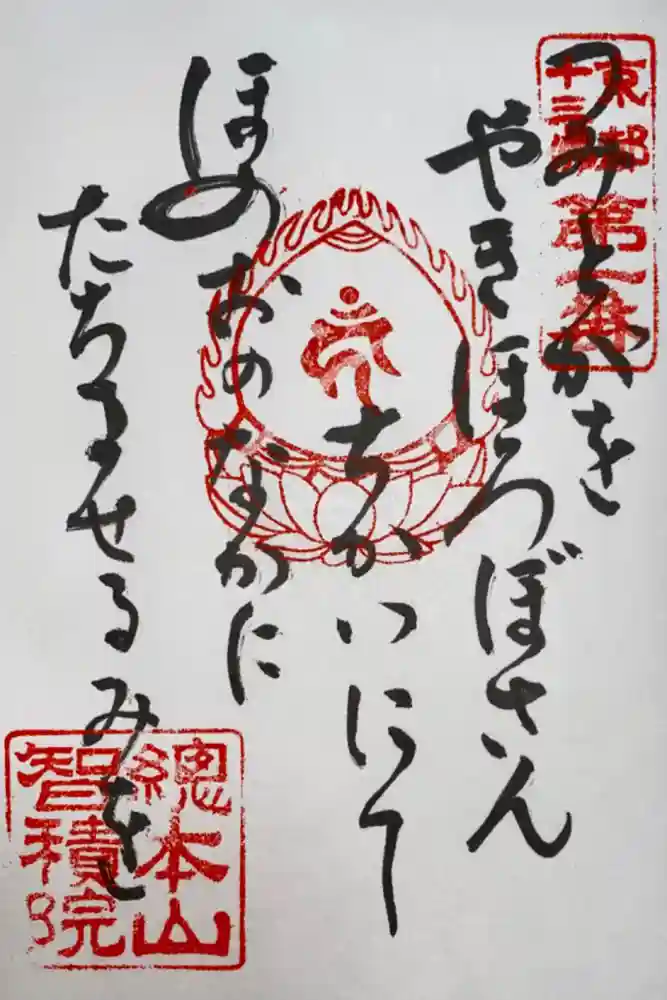 つみとがを
やきほろぼさん
ちかいにて
ほのおのなかに
たちませるみを
京都
十三佛
第二番
總本山
智積院